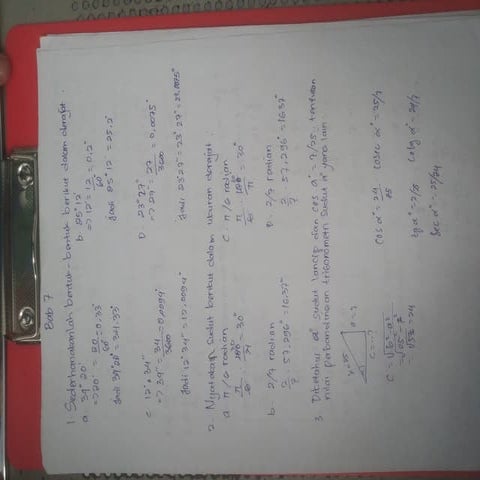 Bab 7
1. Sederhanakanlah bentuk-bentuk berikut dalam derajat.
a. 34° 20'
=> 20' = 20/60 = 0.33°
Jadi 34° 20' = 34.33°
b. 25° 12'
=> 12' = 12/60 = 0,2°
Jadi 25° 12' = 25,2°
c. 12° 34"
=> 34" = 34/3600 = 0.0094°
Jadi 12° 34" = 12.0094°
D. 23° 27"
=> 27" = 27/3600 = 0,0075°
Jadi 23° 27" = 23° 27" = 23.0075°
2. Nyatakan sudut berikut dalam ukuran derajat.
a. π/6 radian
30°
b. 2/7 radian
2/7 . 57,296° = 16.37°
c. π/6 radian
30°
D. 2/7 radian
2/7 57,296° = 16.37°
3. Diketahui α° sudut lancip dan cos α° = 7/25. tentukan
nilai perbandingan trigonometri sudut α° yang lain
cos α° = 24/25
cosec α° = 25/7
sec α° = 25/24